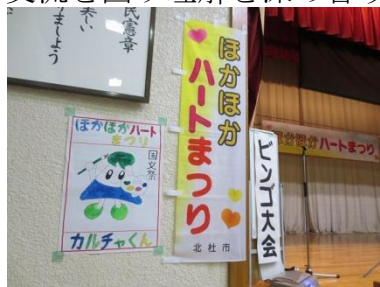 民憲章
美しい
りましょう
ほかほかハート
まつり
国文祭
カルチャくん
ほかほか
ハートまつり
北杜市
ビンゴ大会
ほかほかハートまつり